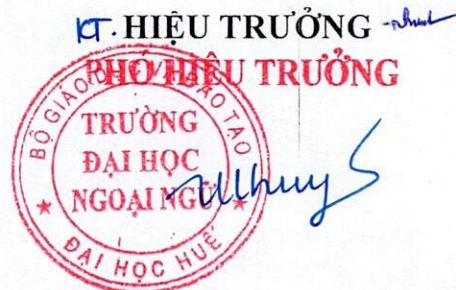 KT. HIỆU TRƯỞNG
PHÓ HIỆU TRƯỞNG
BỘ GIÁO DỤC VÀ ĐÀO TẠO
TRƯỜNG
ĐẠI HỌC
NGOẠI NGỮ
ĐẠI HỌC HUẾ